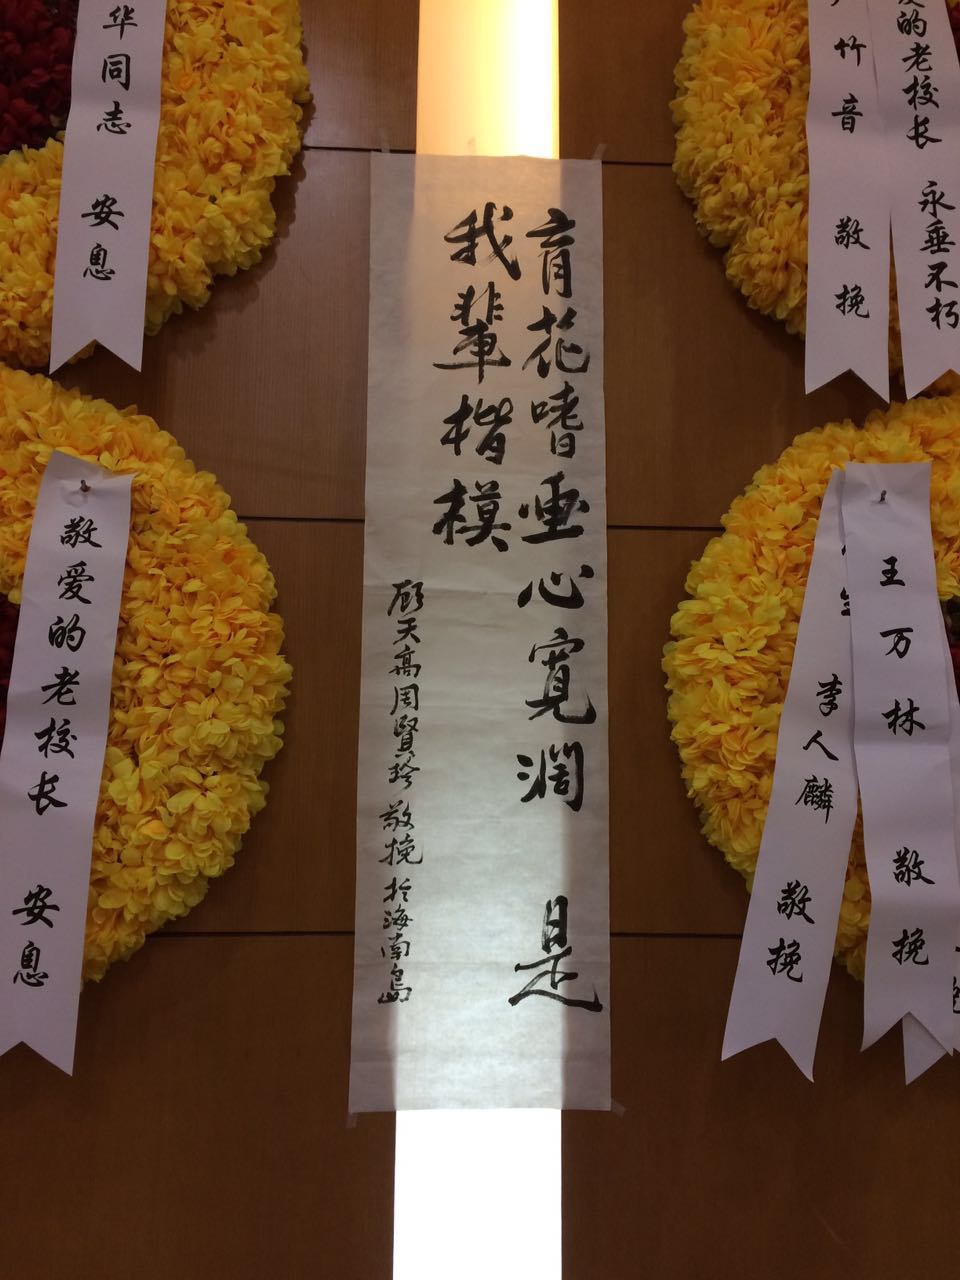 育花嗜画心寬濶 是
我輩楷模
顾天高周賢珍敬挽於海南島
华同志 安息
敬爱的老校长 安息
竹音 敬挽
爱的老校长 永垂不朽
李人麟 敬挽
王万林 敬挽